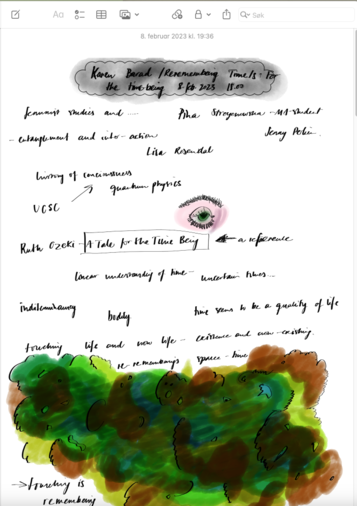 Aa
Søk
8. februar 2023 kl. 19:36
Karen Barad / Re-remembering Time/s: For
the time being 8 feb 2023 18.00
feminist studies and ....
MA-student
- entanglement and intra-action
Lisa Rosendal
history of consciousness
quantum physics
UCSC
Ruth Ozeki - A Tale for the Time Being ← a reference
linear understanding of time - uncertain times...
indeterminacy
bodily
time seems to be a quality of life
touching life and non life - existence and non-existing
re-remembering space-time
→ touching is
remembering